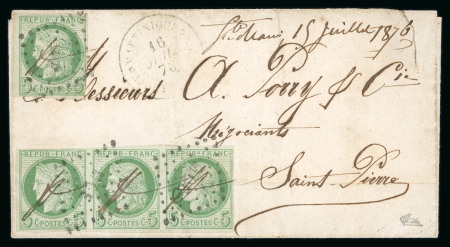 REPUB. FRANC.
5 C. POSTES 5 C.
MARTINIQUE
16
JUIL.
76
15 Juillet 1876
Messieurs A. Porry & Cie
Négociants
Saint-Pierre
REPUB. FRANC. REPUB. FRANC. REPUB. FRANC.
5 C. POSTES 5 C. 5 C. POSTES 5 C. 5 C. POSTES 5 C.